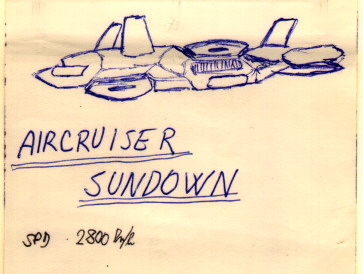 AIRCRUISER
SUNDOWN
SPD 2800 km/h